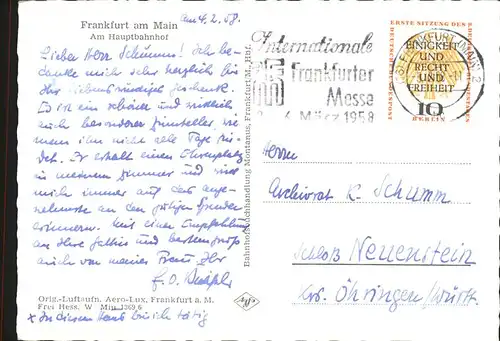 Frankfurt am Main
Am Hauptbahnhof
am 4.2.58.
Lieber Herr Schumm! Ich be-
danke mich sehr herzlich für
Ihr liebenswürdiges Gedenken.
Es ist ein schöner und wirklich
auch besonderer Zimelien, wie
man ihn nicht alle Tage fin-
det. Er erhält einen Ehrenplatz
in meinem Zimmer und wird
mich immer auf das ange-
nehmste an den gütigen Spender
erinnern. Mit einer Empfehlung
an Ihre Gattin und besten Grüß
auch von meiner Frau Ihr
Orig.-Luftaufn. Aero-Lux, Frankfurt a. M.
Frei Hess. W Min 1369/6
x In diesem Haus bin ich tätig
Bahnhofsbuchhandlung Montanus, Frankfurt M., Hbf.
Internationale
Frankfurter
Messe
4. März 1958
ERSTE SITZUNG DES
EINIGKEIT
UND
RECHT
UND
FREIHEIT
10
BERLIN
FRANKFURT
Herrn
Archivrat K. Schumm
Schloß Neuenstein
Krs. Öhringen/Württ.